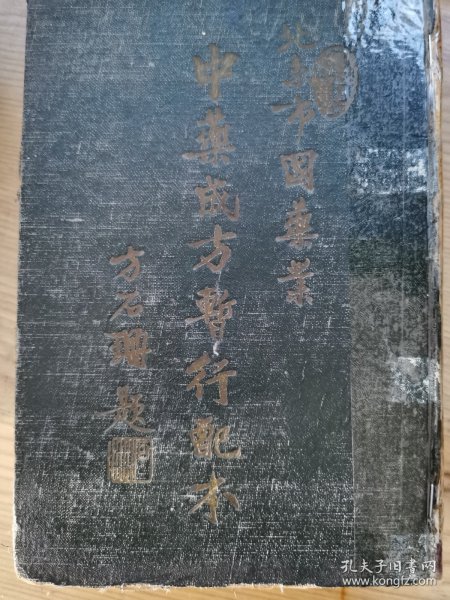 北京市国药業
中藥成方暫行配本
方石珊題
孔夫子旧书网
www.kongfz.com